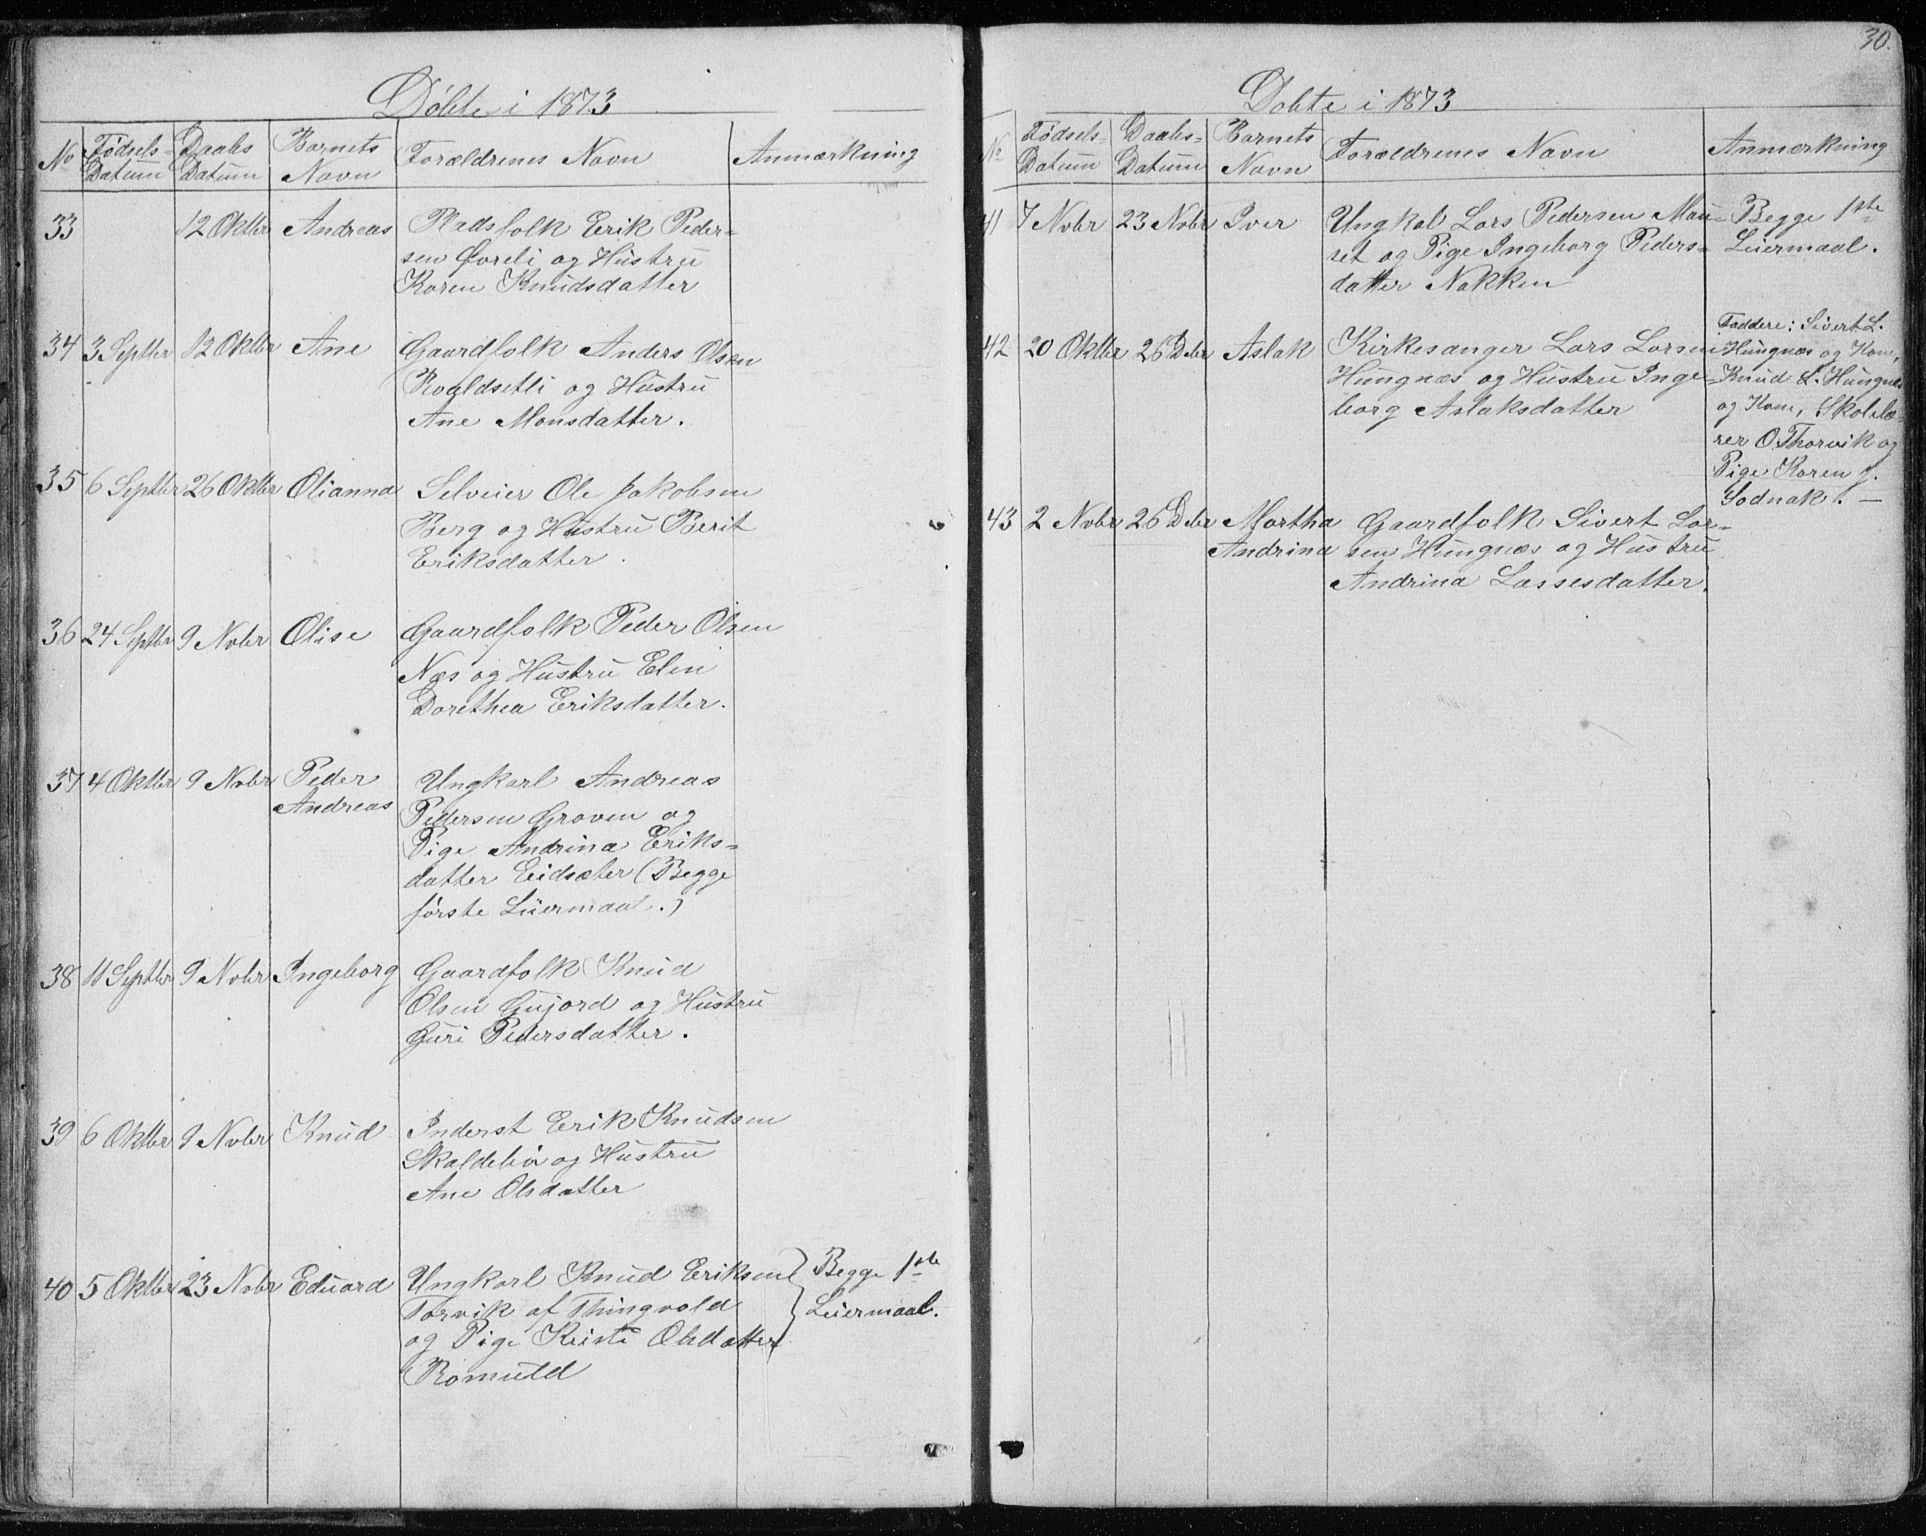 Døbte i 1873
No Fødsels- Daabs Barnets Forældrenes Navn Anmærkning
Datum Datum Navn
33 12 Oktbr Andreas Pladsfolk Erik Peder-
sen Øvreli og Hustru
Karen Knudsdatter
34 3 Septbr 12 Oktbr Ane Gaardfolk Anders Olsen
Roaldsetli og Hustru
Ane Monsdatter.
35 6 Septbr 26 Oktbr Olianna Selveier Ole Jakobsen
Berg og Hustru Berit
Eriksdatter.
36 24 Septbr 9 Novbr Olise Gaardfolk Peder Olsen
Næs og Hustru Elen
Dorethea Eriksdatter.
37 4 Oktbr 9 Novbr Peder Ungkarl Andreas
Andreas Pedersen Groven og
Pige Andrina Eriks-
datter Eidsæter (Begge
første Leiermaal.)
38 11 Septbr 9 Novbr Ingeborg Gaardfolk Knud
Olsen Gujord og Hustru
Guri Pedersdatter.
39 6 Oktbr 9 Novbr Knud Inderst Erik Knudsen
Skaldebø og Hustru
Ane Olsdatter
40 5 Oktbr 23 Novbr Eduard Ungkarl Knud Eriksen Begge 1ste
Torvik af Thingvold Leiermaal.
og Pige Kristi Olsdatter
Romuld
30.
Døbte i 1873
No Fødsels- Daabs- Barnets Forældrenes Navn Anmærkning
Datum Datum Navn
41 7 Novbr 23 Novbr Iver Ungkal Lars Pedersen Mau- Begge 1ste
set og Pige Ingeborg Peders- Leiermaal.
datter Nakken
42 20 Oktbr 26 Dcbr Aslak Kirkesanger Lars Larsen Faddere: Sivert L.
Hungnæs og Hustru Inge- Hungnæs og Kone,
borg Aslaksdatter Knud L. Hungnæs
og Kone, Skolelæ-
rer O Thorvik og
Pige Karen J.
Sodnak. —
43 2 Novbr 26 Dcbr Martha Gaardfolk Sivert Lar-
Andrina sen Hungnæs og Hustru
Andrina Lassesdatter.